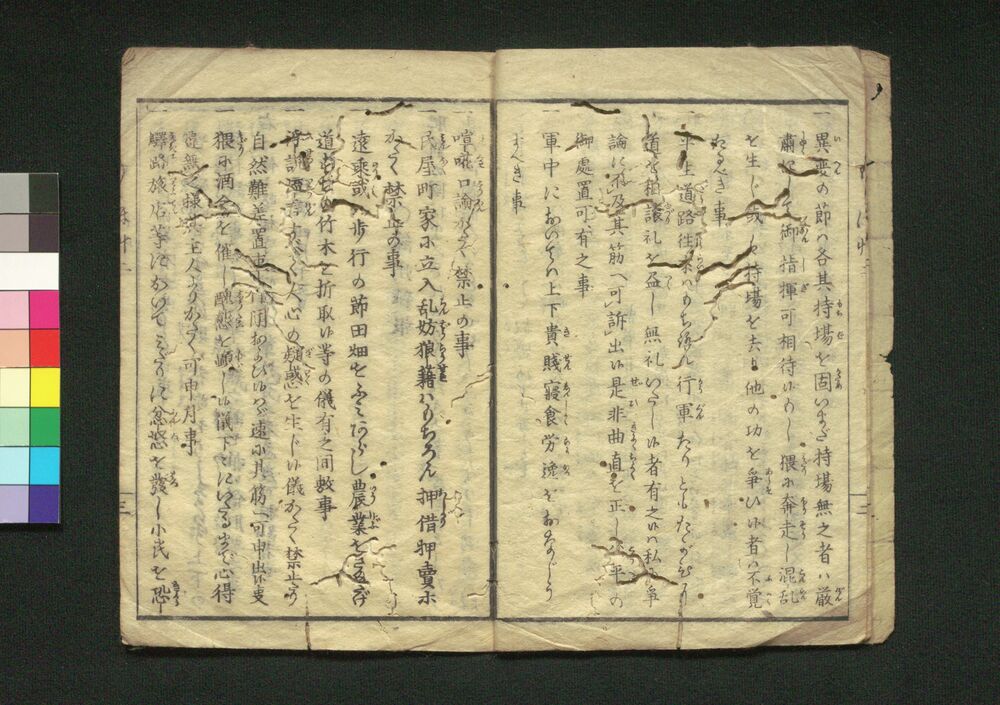 一異変の節ハ各其持場を固いまだ持場無之者ハ厳
粛にして御指揮可相待候もし猥ニ奔走し混乱
を生じ或ハ持場を去り他の功を争ひ候者ハ不覚
たるべき事
一平生道路往来ハもち論行軍たりともたがひに
道を相譲礼を尽し無礼いたし候者有之候ハ私に争
論に不及其筋へ可訴出候是非曲直を正し公平の
御処置可有之事
一軍中において上下貴賤寝食労逸をおなじう
すべき事
一喧𠵅口論かたく禁止の事
一民屋町家ニ立入乱妨狼藉ハもちろん押借押売等
かたく禁止の事
一遠乗或ハ歩行の節田畑をふミあらし農業を
道すじの竹木を折取候等の儀有之間敷事
一浮説かたく人心の疑惑を生じ候儀かたく禁止
自然難差置事件聞および候ハヾ速ニ其筋へ可申出候事
一猥ニ酒会を催し醜態を顕し候儀下々にいたるまで心得
違無之様其主人よりかたく可申付事
一駅路旅店等においてみだりに忿怒を発し小民を恐
三
三